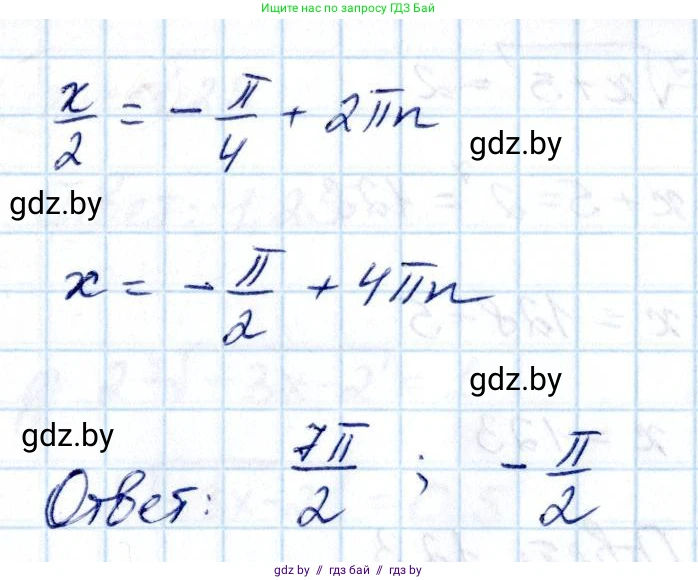 Ищите нас по запросу ГДЗ Бай
x/2 = - π/4 + 2πn
gdz.by
gdz.by
x = - π/2 + 4πn
gdz.by
gdz.by
Ответ: 7π/2 ; - π/2
gdz.by // гдз бай // гдз by